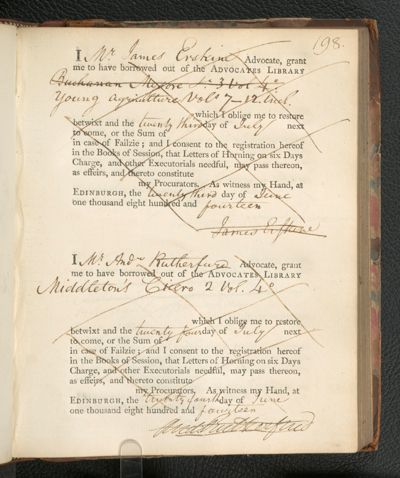 198.
I Mr. James Erskine Advocate, grant
me to have borrowed out of the ADVOCATES LIBRARY
Buchanan Mysore 3 Vol 4o.
Young Agriculture Vols 7–12 incl.
which I oblige me to restore
betwixt and the twenty third day of July next
to come, or the Sum of
in case of Failzie; and I consent to the registration hereof
in the Books of Session, that Letters of Horning on six Days
Charge, and other Executorials needful, may pass thereon,
as effeirs, and thereto constitute
my Procurators. As witness my Hand, at
EDINBURGH, the twenty third day of June
one thousand eight hundred and fourteen
James Erskine
I Mr. Andw Rutherfurd Advocate, grant
me to have borrowed out of the ADVOCATES LIBRARY
Middleton's Cicero 2 Vol. 4o
which I oblige me to restore
betwixt and the twenty four day of July next
to come, or the Sum of
in case of Failzie; and I consent to the registration hereof
in the Books of Session, that Letters of Horning on six Days
Charge, and other Executorials needful, may pass thereon,
as effeirs, and thereto constitute
my Procurators. As witness my Hand, at
EDINBURGH, the twenty fourth day of June
one thousand eight hundred and fourteen
And Rutherfurd